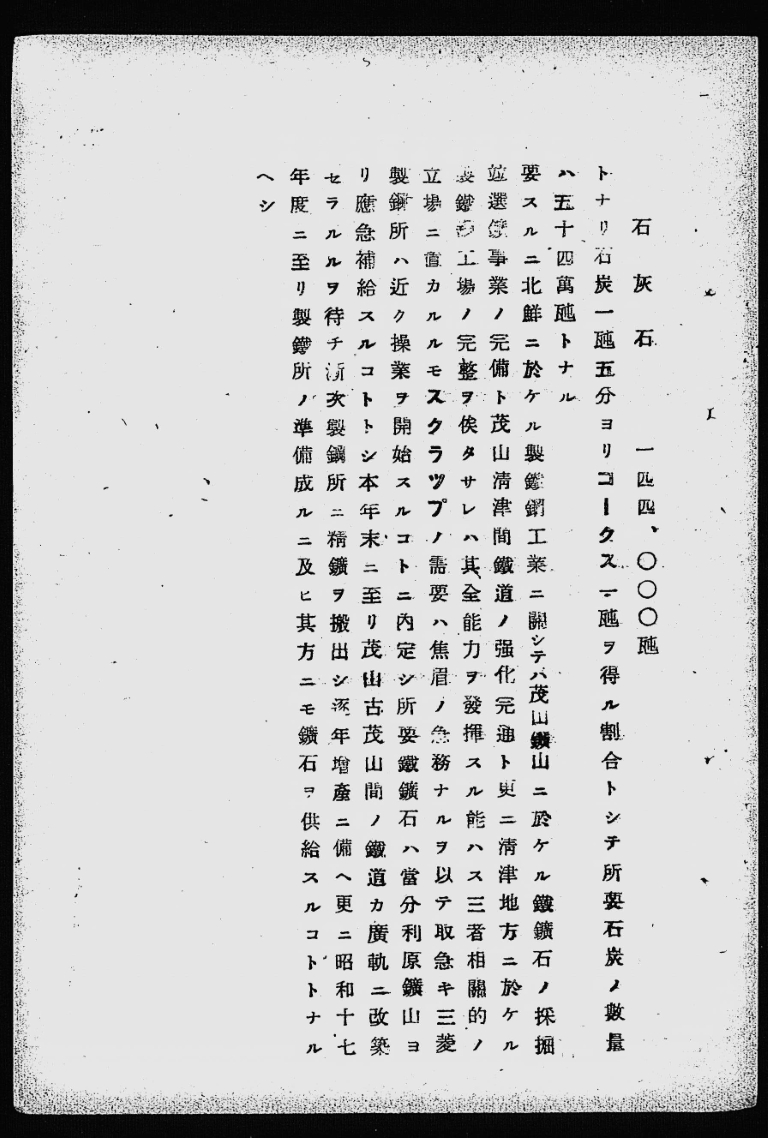 石灰石　一四四、〇〇〇瓲
トナリ石炭一瓲五分ヨリコークス一瓲ヲ得ル割合トシテ所要石炭ノ數量
ハ五十四萬瓲トナル
要スルニ北鮮ニ於ケル製鐵鋼工業ニ關シテハ茂山鑛山ニ於ケル鐵鑛石ノ採掘
竝選鑛事業ノ完備ト茂山淸津間鐵道ノ强化完通ト更ニ淸津地方ニ於ケル
製鐵工場ノ完整ヲ俟タサレハ其全能力ヲ發揮スル能ハス三者相關的ノ
立場ニ置カルルモスクラップノ需要ハ焦眉ノ急務ナルヲ以テ取急キ三菱
製鋼所ハ近ク操業ヲ開始スルコトニ內定シ所要鐵鑛石ハ當分利原鑛山ヨ
リ應急補給スルコトトシ本年末ニ至リ茂山古茂山間ノ鐵道カ廣軌ニ改築
セラルルヲ待チ漸次製鋼所ニ精鑛ヲ搬出シ逐年增產ニ備ヘ更ニ昭和十七
年度ニ至リ製鐵所ノ準備成ルニ及ヒ其方ニモ鑛石ヲ供給スルコトトナル
ヘシ